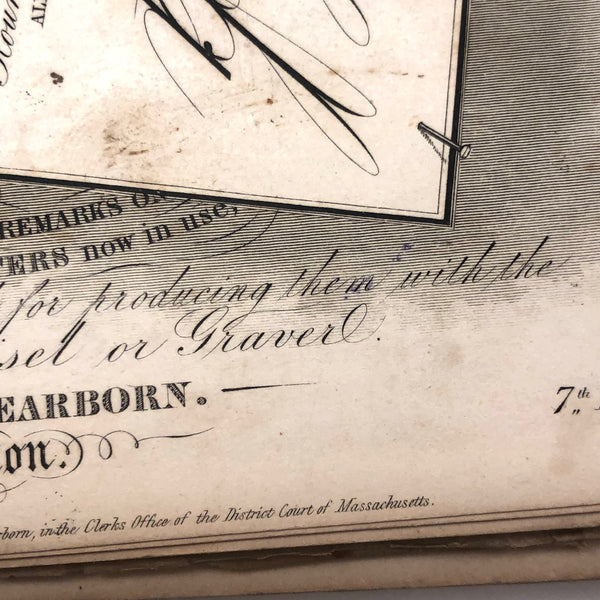 Roun
AL
REMARKS ON
TERS now in use,
d for producing them with the
isel or Graver.
EARBORN.
7th
on.
born, in the Clerks Office of the District Court of Massachusetts.